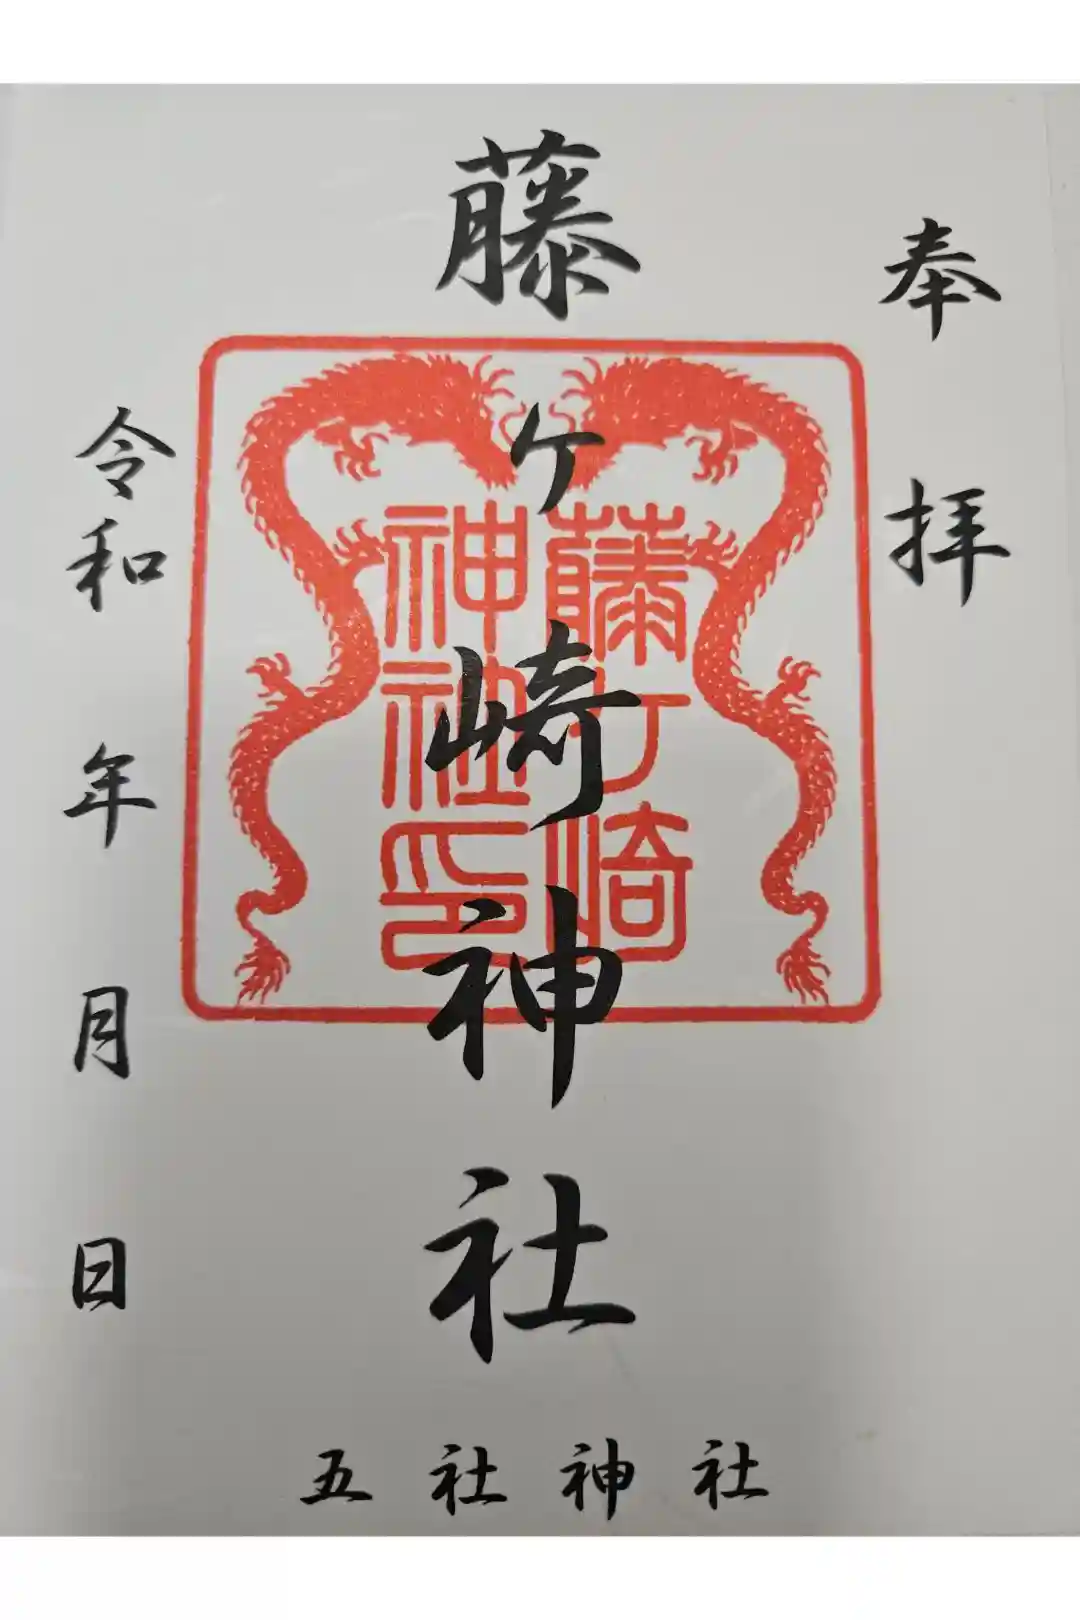 奉拝
藤ケ崎神社
藤ケ崎
神社印
令和 年 月 日
五社神社